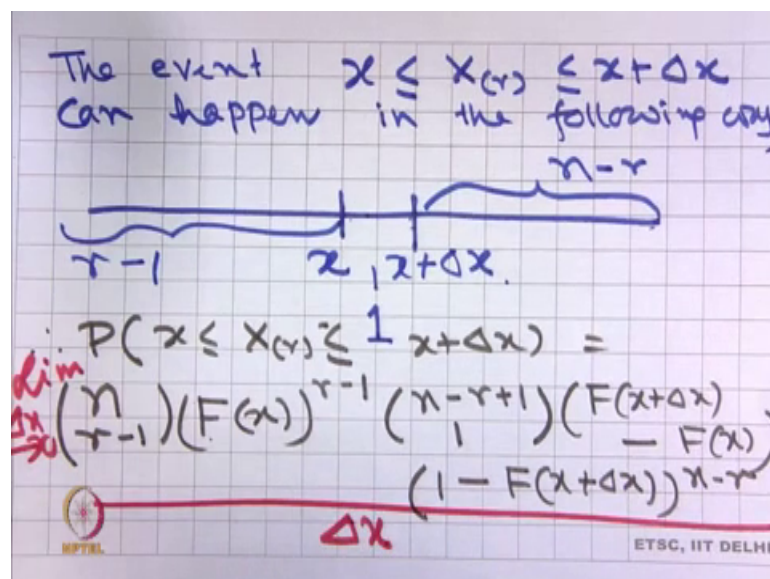 The event x ≤ X(r) ≤ x + Δx
can happen in the following way
n-r
r-1 x , x+Δx.
1
∴ P( x ≤ X(r) ≤ x+Δx) =
Lim Δx→0 (n r-1) (F(x))^{r-1} (n-r+1 1) (F(x+Δx) - F(x))
(1 - F(x+Δx))^{n-r}
Δx
NPTEL
ETSC, IIT DELHI